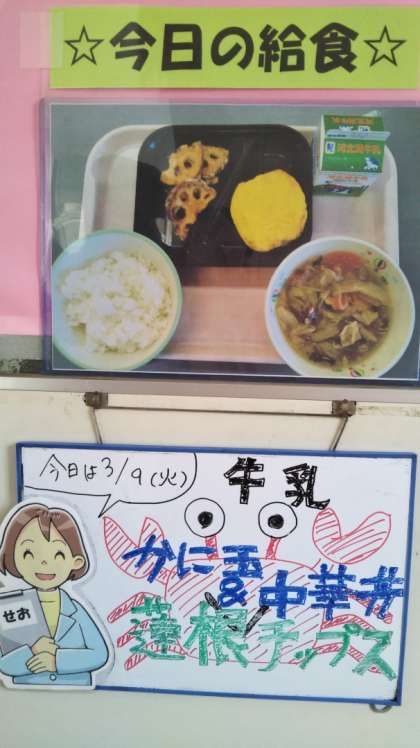 ☆今日の給食☆
河北潟牛乳
今日は3/9(火)
牛乳
かに玉
&中華丼
蓮根チップス
せお